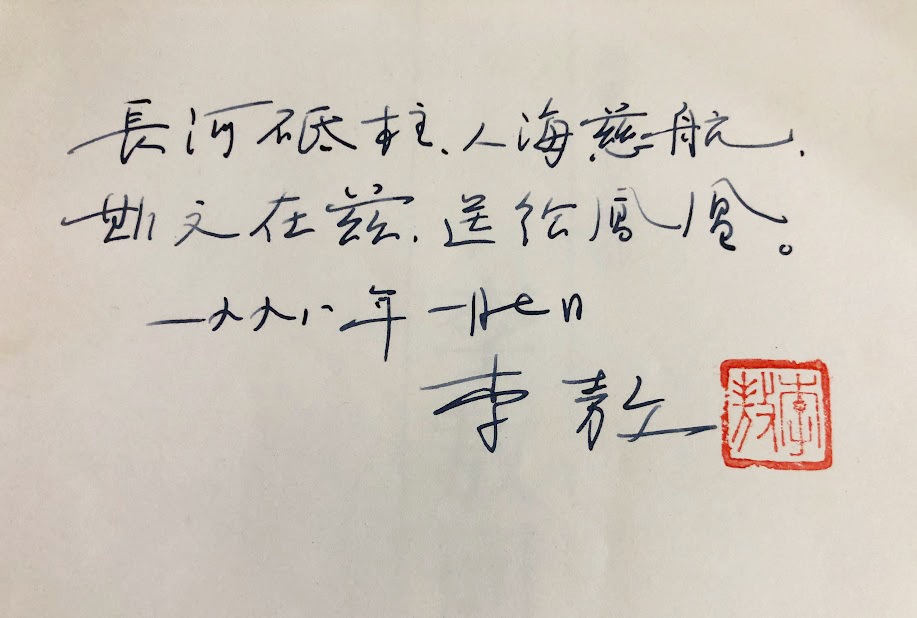 長河砥柱、人海慈航、
斯文在茲、送給鳳凰。
一九九八年一月七日
李敖
李敖